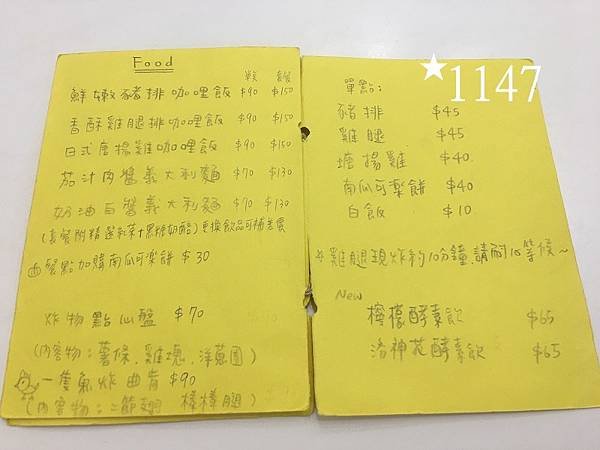 Food
單點 套餐
鮮嫩豬排咖哩飯 $90 $150
香酥雞腿排咖哩飯 $90 $150
日式唐揚雞咖哩飯 $90 $150
茄汁肉醬義大利麵 $70 $130
奶油白醬義大利麵 $70 $130
(套餐附精選紅茶+黑糖奶酪)更換飲品可補差價
餐點加購南瓜可樂餅 $30
炸物點心盤 $70
(內容物:薯條、雞塊、洋蔥圈)
一隻氣炸曲肯 $90
(內容物:二節翅 棒棒腿)
★1147
單點:
豬排 $45
雞腿 $45
塘揚雞 $40
南瓜可樂餅 $40
白飯 $10
雞腿現炸約10分鐘,請耐心等候~
New
檸檬酵素飲 $65
洛神花酵素飲 $65